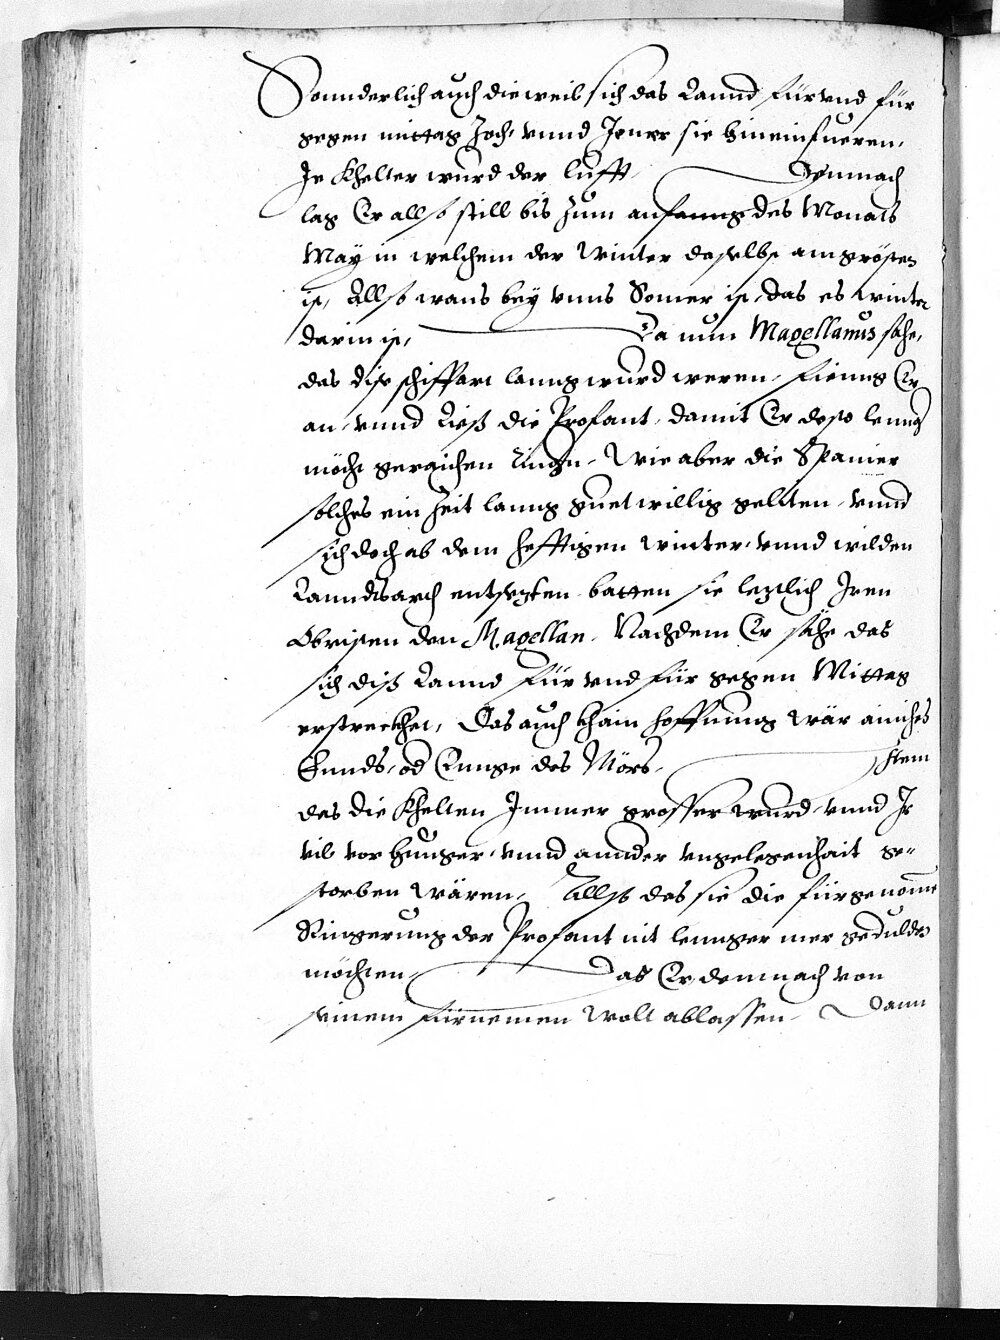 Sonnderlich auch dieweil sich das Lannd für vnd für
gegen mittag zoch, vnnd Jenner sie hineinfueren,
Je Khelter wurd der lufft, Demnach
lag Er allso still bis zum anfanng des Monats
May in welchem der Winter daselbs am grösten
ist, Allso wans bey vnns Somer ist, das es winter
darin ist, Da nun Magellanus sahe,
das dise schiffart lanng wurd weren, Fienng Er
an, vnnd Ließ die Profant, damit Er desto lenng
möcht geraichen ringern, Wie aber die Spanier
solches ein Zeit lanng guetwillig gelitten, vnnd
sich doch ab dem hefftigen winter, vnnd wilden
Lanndtsarth entsezten, batten sie leztlich Iren
Obristen den Magellan, Nachdem Er sähe das
sich diß Lannd Für vnd für gegen Mittag
erstreckhet, Das auch khain hoffnung wär ainiches
Ennds, od Ennge des Mörs, Item
das die Khelten Immer grosser wurd, vnnd Ir
vil vor hunger, vnnd annder vngelegenhait ge-
storben wären, Allso das sie die fürgenome
Ringerung der Profant nit lennger mer gedulden
möchten, Das Er demnach von
seinem fürnemen wolt ablassen, Dann